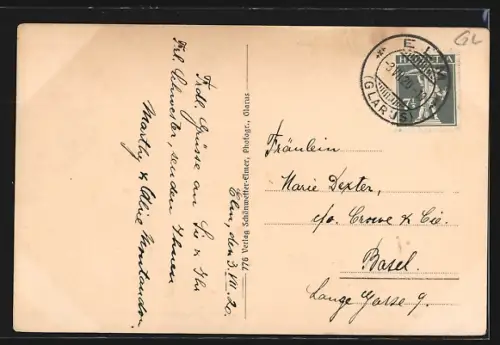 Elm, den 3. VII. 20.
Frdl. Grüsse an Sie & Ihr
Frl. Schwester, senden Ihnen
Marthy & Alice Montandon.
776 Verlag Schönwetter-Elmer, Photogr., Glarus
GL
ELM
(GLARUS)
HELVETIA
Fräulein
Marie Dexter,
c/o. Crowe & Cie.
Basel.
Lange Gasse 9.